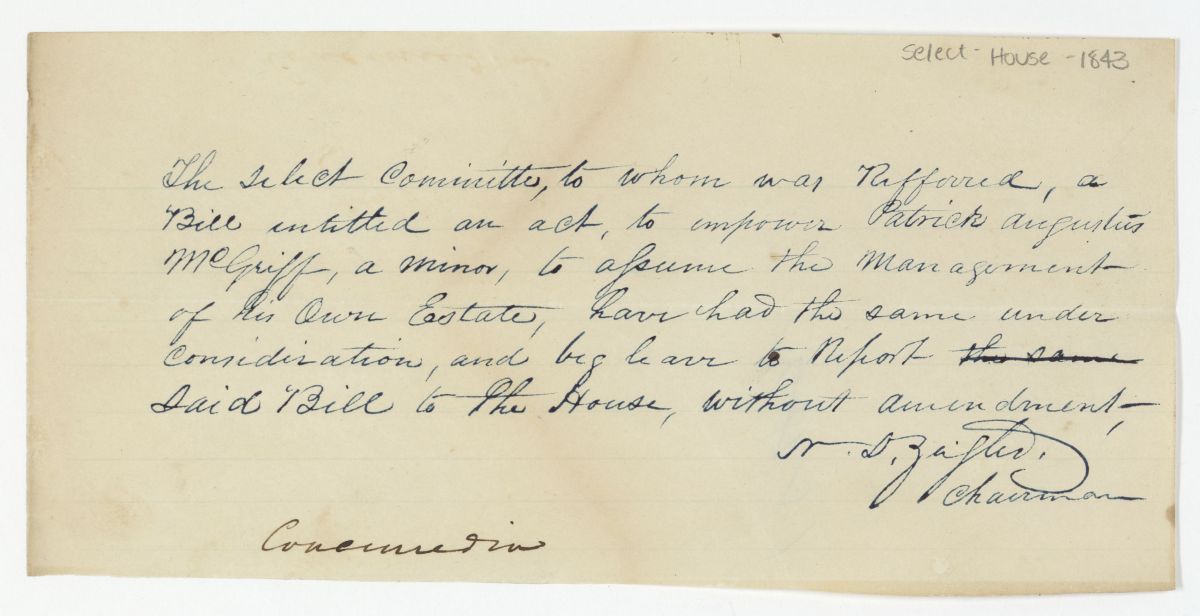 Select - House - 1843
The select Committe, to whom was Refferred, a
Bill intitled an act, to empower Patrick Augustus
McGriff, a minor, to assume the Management
of his Own Estate, have had the same under
Consideration, and beg leave to Report the same
said Bill to The House, without amendment,
N. D. Zeigler.
Chairman
Concurred in